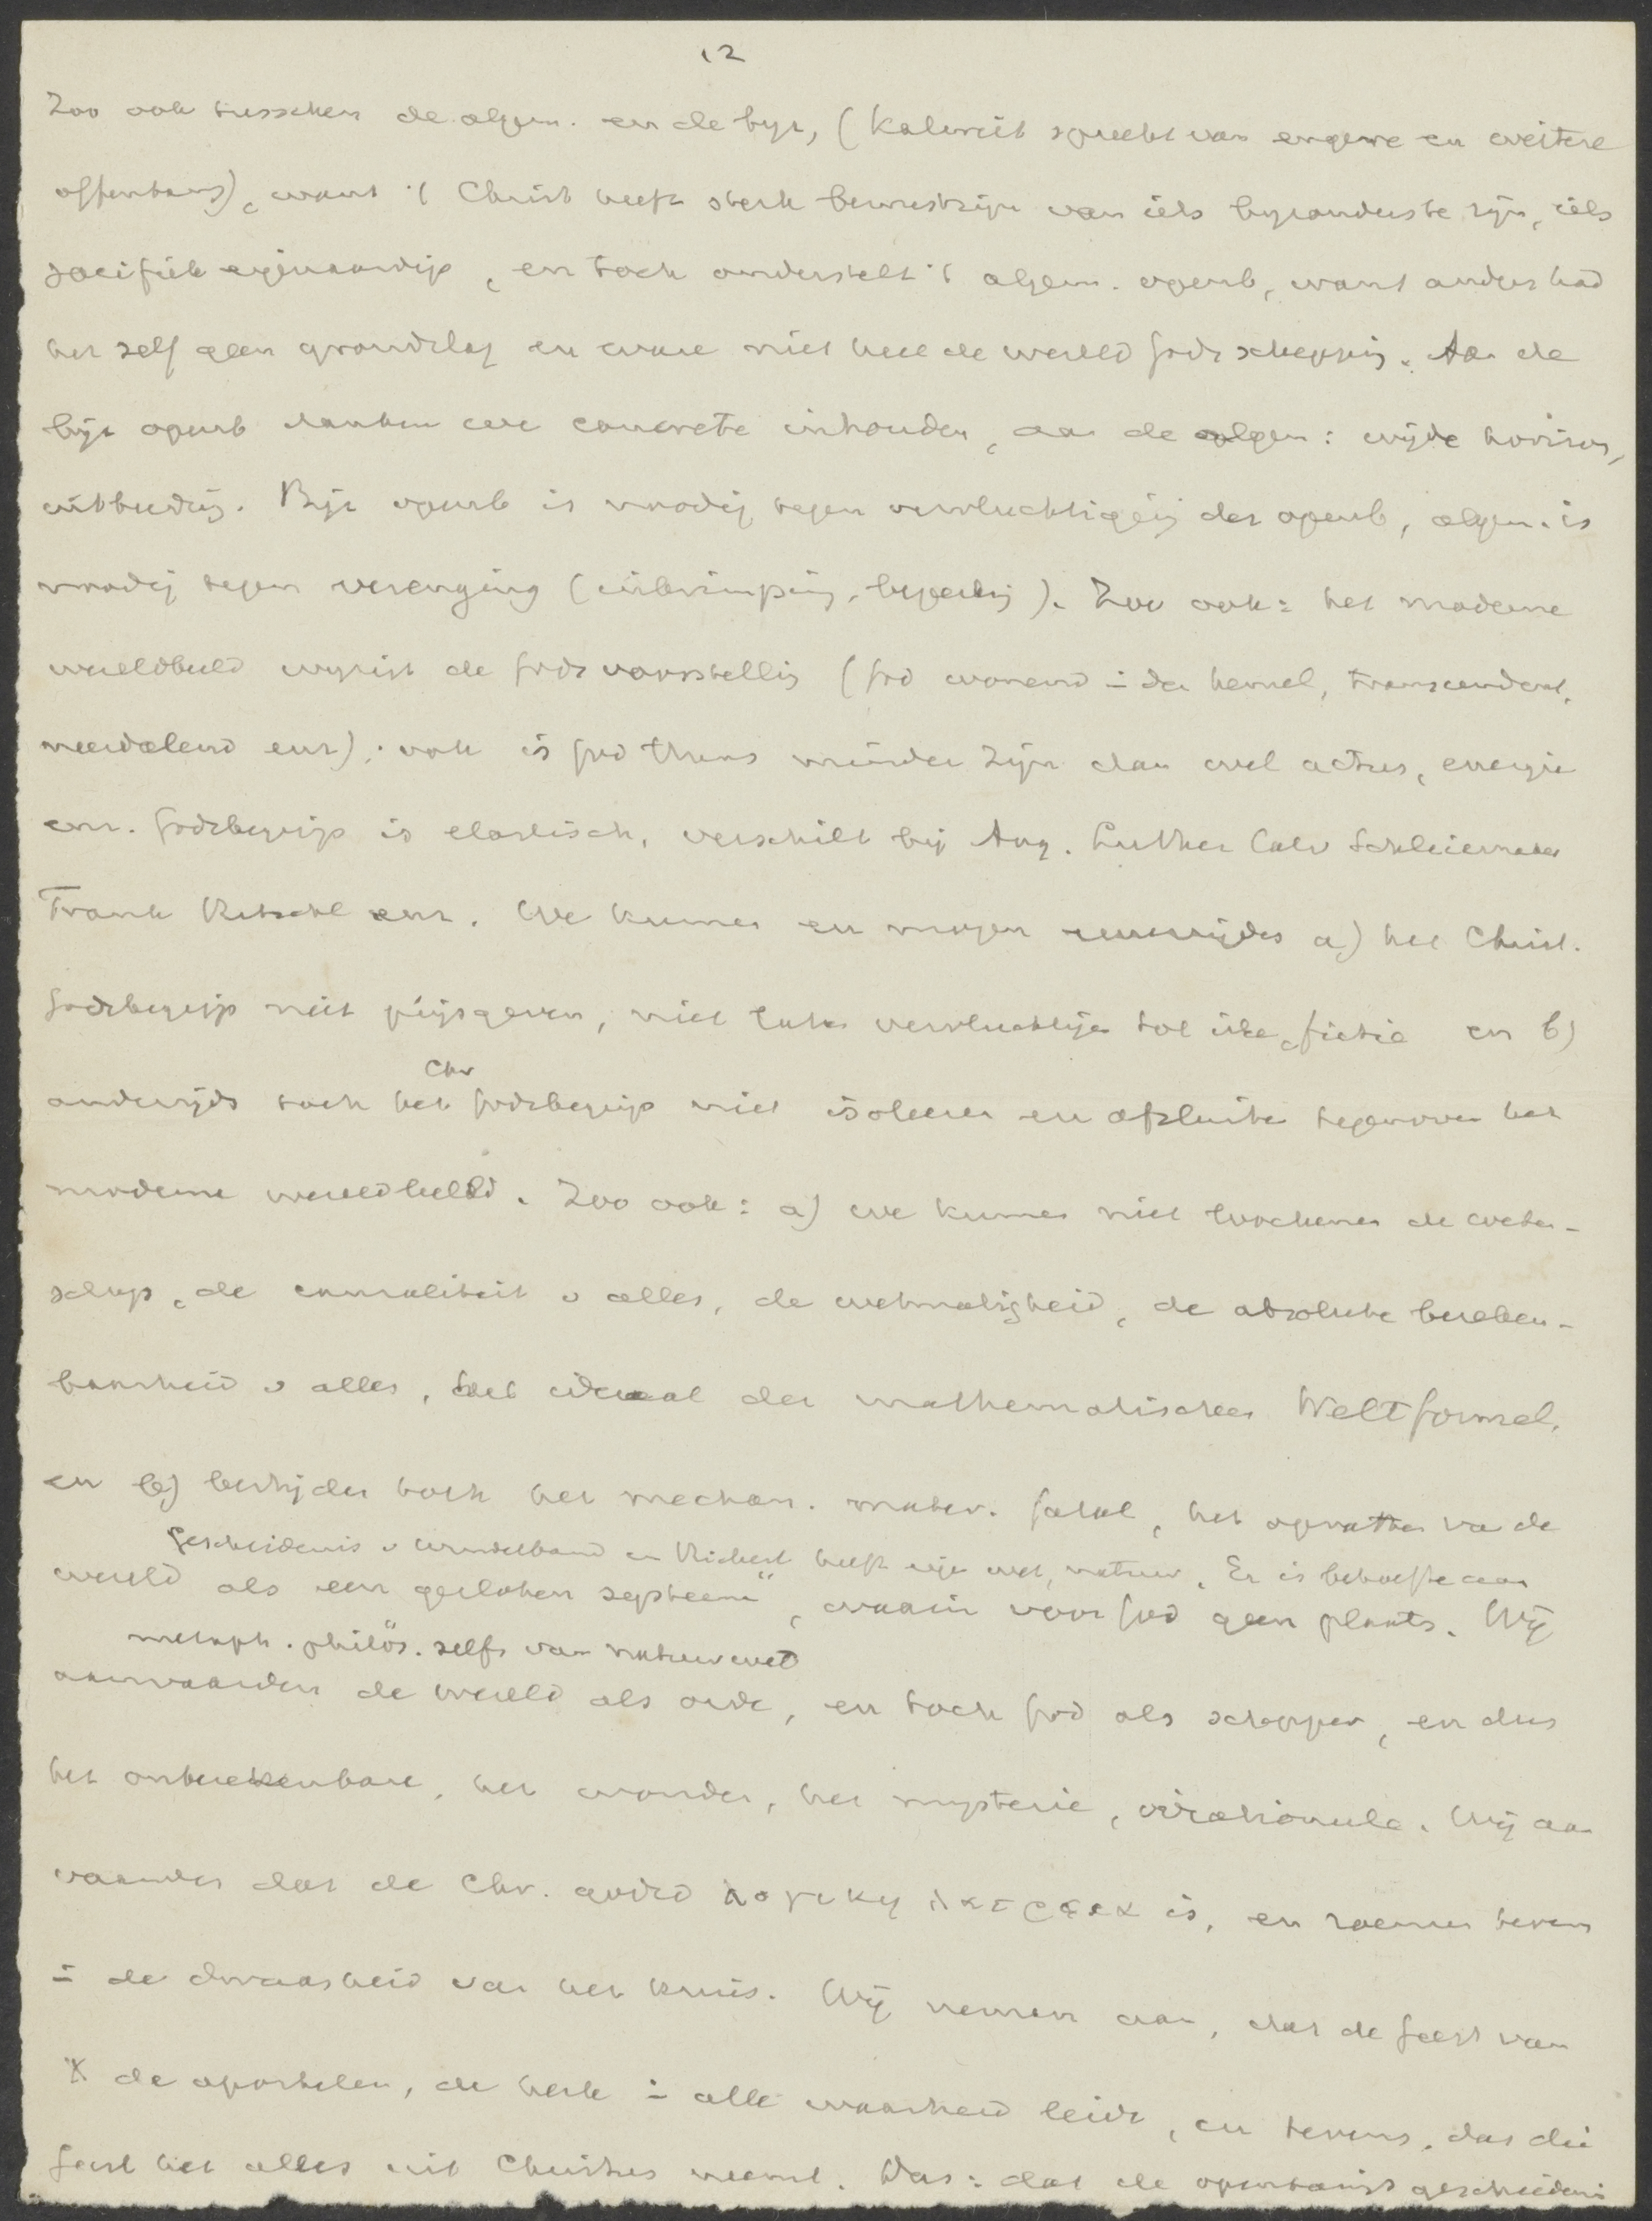 12
Zoo ook tusschen de algem. en de byz, (Kalweit spreekt van engere en weitere
offenbarung), want 't Christ heeft sterk bewustzijn van iets byzonders te zijn, iets
specifiek eigenaardigs, en toch onderstelt 't algem. openb, want anders had
het zelf geen grondslag en ware niet heel de wereld Gods schepping. Aan de
byz openb danken we concrete inhouden, aan de algem: wijde horizon,
uitbreidg. Byz openb is noodig tegen vervluchtiging der openb, algem. is
noodig tegen verenging (inkrimping, beperking). Zoo ook: het moderne
wereldbeeld wyzigt de Gods voorstelling (God wonend in den hemel, transcendent,
neerdalend enz); ook is God thans minder zijn dan wel actus, energie
enz. Godsbegrip is elastisch, verschilt bij Aug. Luther Calv Schleiermacher
Frank Ritschl enz. We kunnen en mogen eenerzijds a) het Christ.
Godsbegrip niet prijsgeven, niet laten vervluchtigen tot idee, fictie en b)
anderzijds toch het Chr Godsbegrip niet isoleeren en afsluiten tegenover het
moderne wereldbeeld. Zoo ook: a) we kunnen niet loochenen de weten-
schap, de causaliteit v alles, de wetmatigheid, de absolute bereken-
baarheid v alles, het ideaal der mathematischen Weltformel,
en b) bestrijden toch het mechan. mater. fatal, het opvatten van de
Geschiedenis v Windelband en Rickert heeft eigen wet, natuur. Er is behoefte aan
wereld als een gesloten systeem, waarin voor God geen plaats. Wij
metaph. philos. zelfs van natuurwet
aanvaarden de wereld als orde, en toch God als schepper, en dus
het onberekenbare, het wonder, het mysterie, irrationeele. Wij aan
vaarden dat de Chr. godsd λογικη λατρεια is, en roemen tevens
in de dwaasheid van het kruis. Wij nemen aan, dat de Geest van
X de apostelen, de kerk in alle waarheid leidt, en tevens, dat die
Geest het alles uit Christus neemt. Das: dat de openbarings geschiedenis